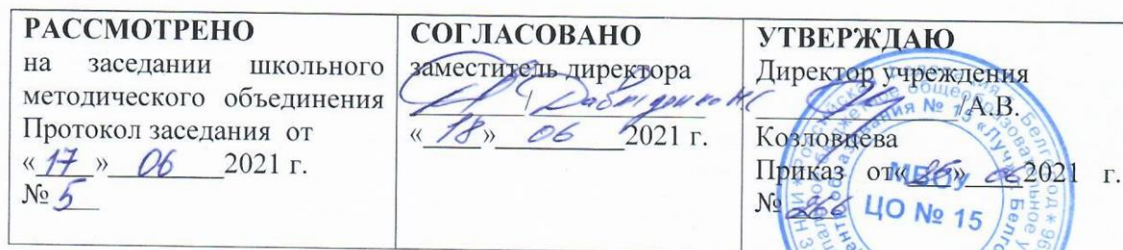 РАССМОТРЕНО
на заседании школьного
методического объединения
Протокол заседания от
«17» 06 2021 г.
№ 5
СОГЛАСОВАНО
заместитель директора
«18» 06 2021 г.
УТВЕРЖДАЮ
Директор учреждения
/А.В.
Козловцева
Приказ от« » 06 2021 г.
№
МБОУ
ЦО № 15